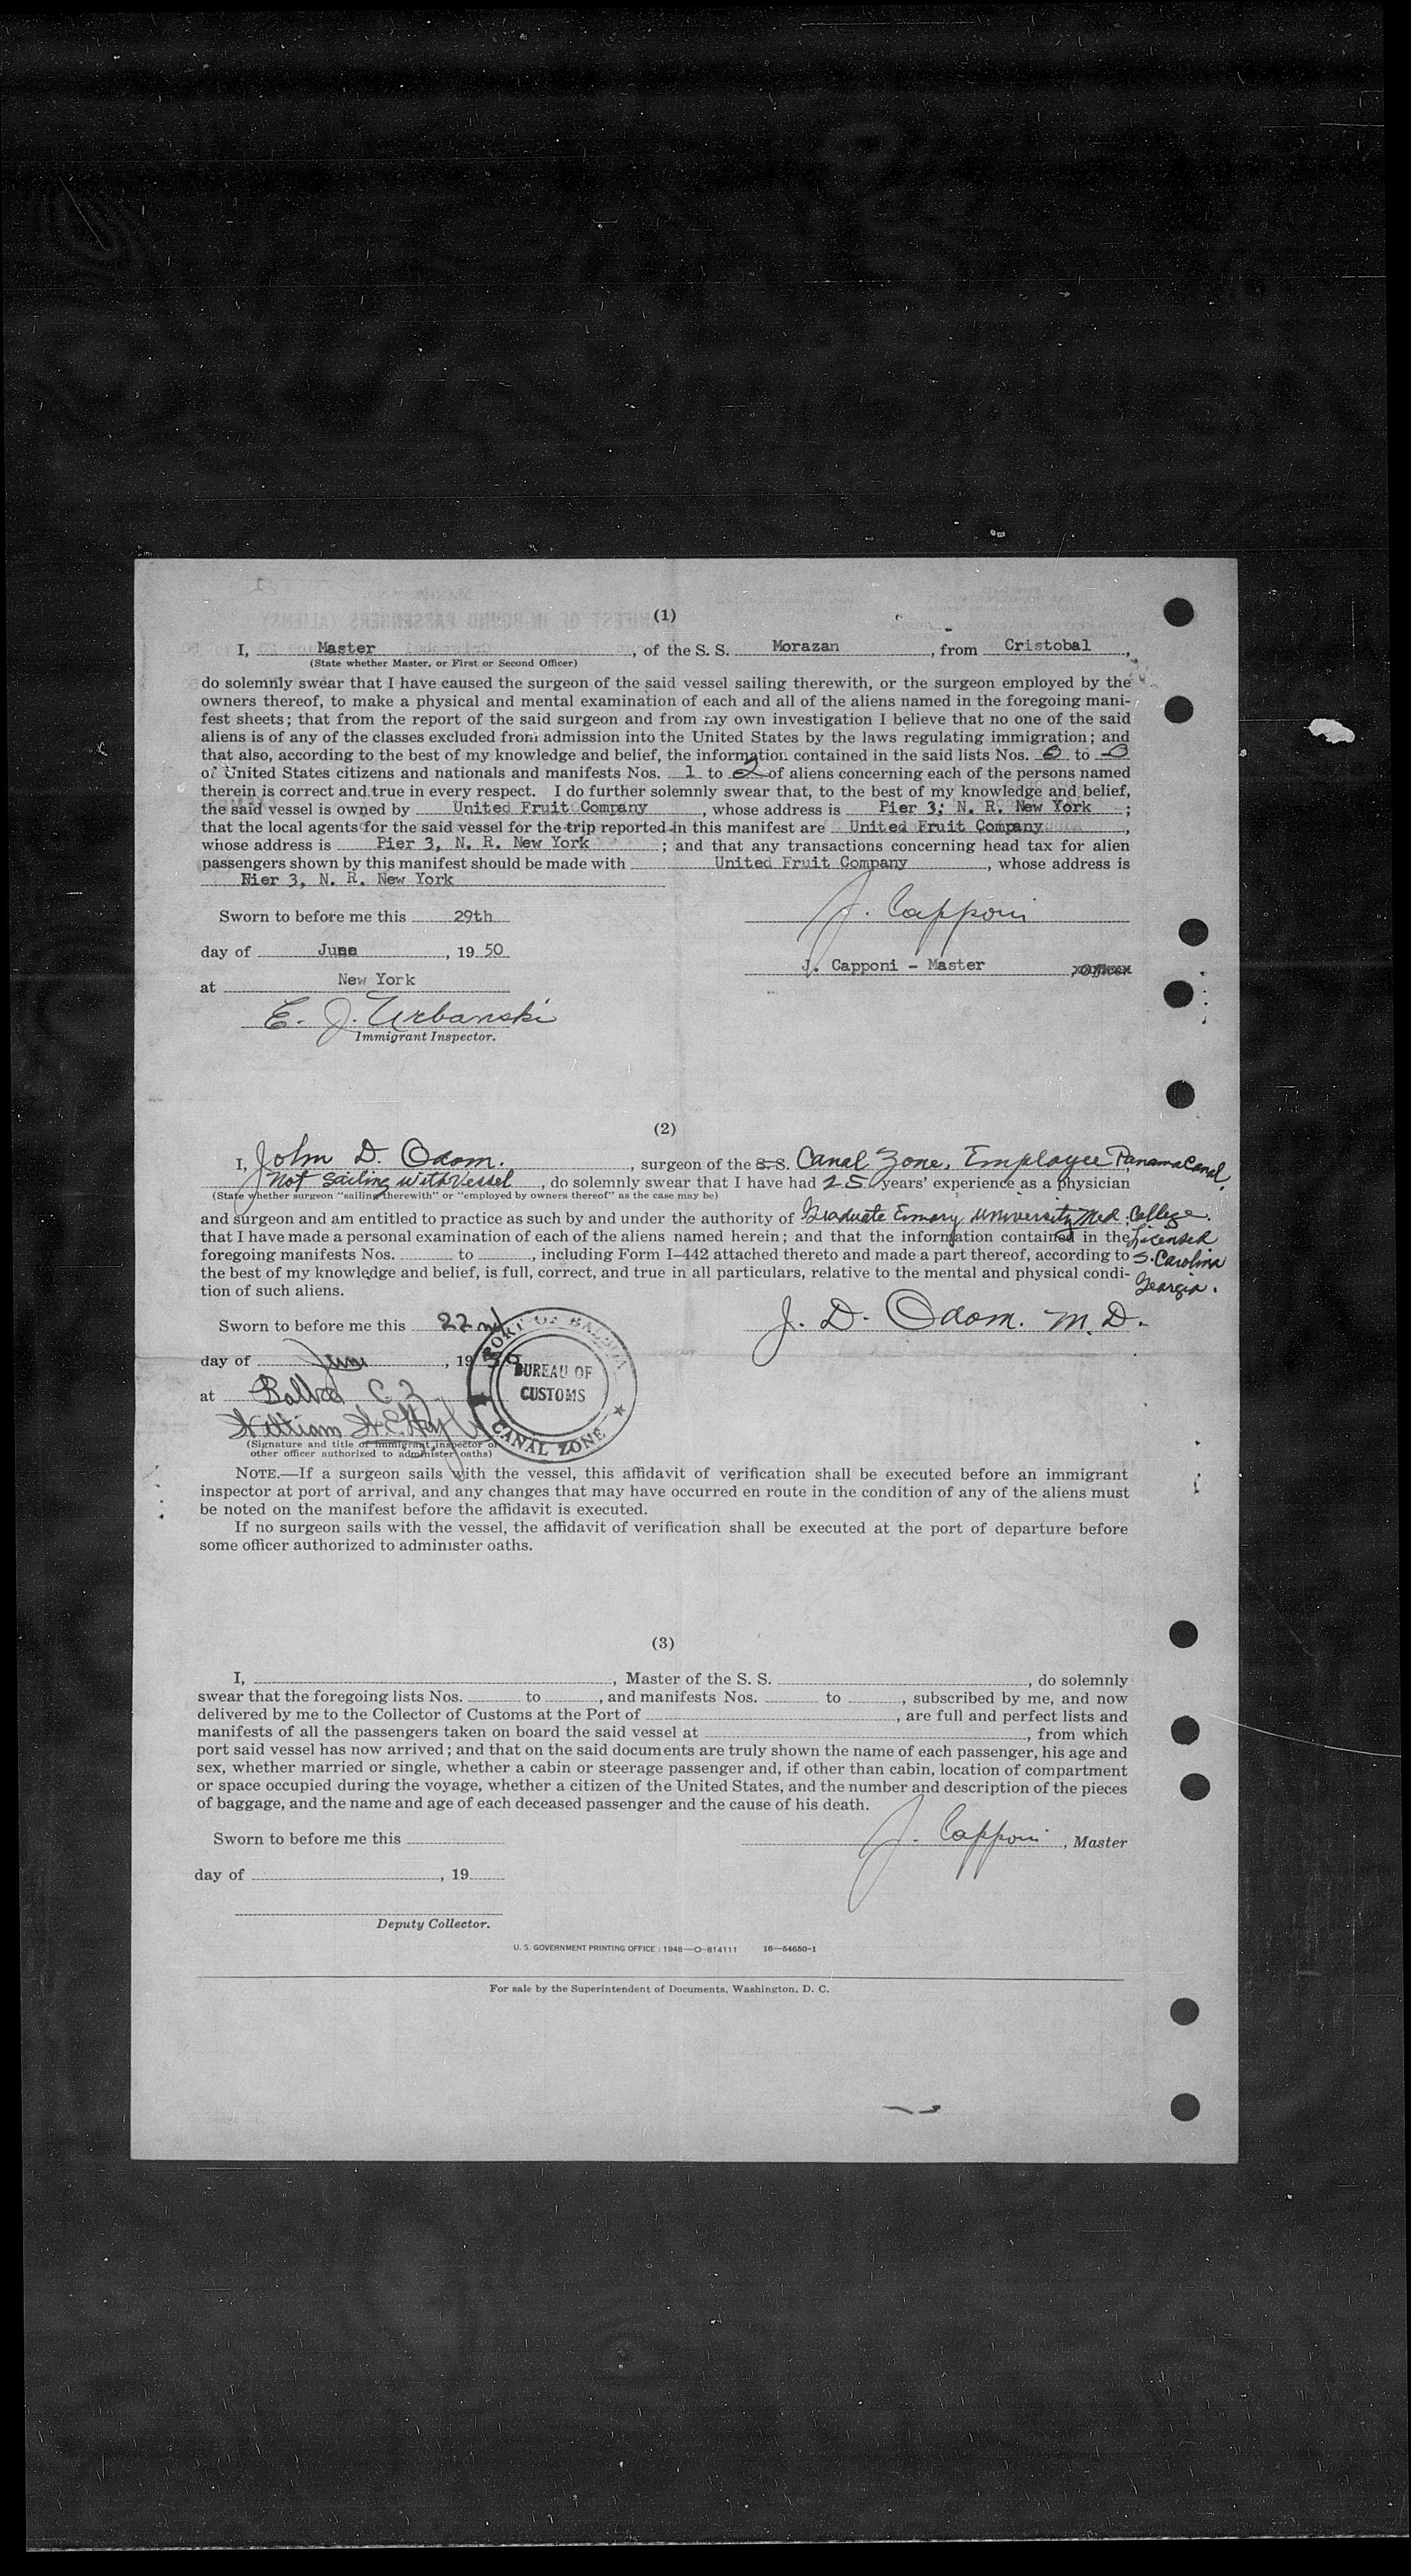 (1)
I, Master, of the S. S. Morazan, from Cristobal,
(State whether Master, or First or Second Officer)
do solemnly swear that I have caused the surgeon of the said vessel sailing therewith, or the surgeon employed by the
owners thereof, to make a physical and mental examination of each and all of the aliens named in the foregoing mani-
fest sheets; that from the report of the said surgeon and from my own investigation I believe that no one of the said
aliens is of any of the classes excluded from admission into the United States by the laws regulating immigration; and
that also, according to the best of my knowledge and belief, the information contained in the said lists Nos. 0 to 0
of United States citizens and nationals and manifests Nos. 1 to 2 of aliens concerning each of the persons named
therein is correct and true in every respect. I do further solemnly swear that, to the best of my knowledge and belief,
the said vessel is owned by United Fruit Company, whose address is Pier 3, N. R. New York;
that the local agents for the said vessel for the trip reported in this manifest are United Fruit Company,
whose address is Pier 3, N. R. New York; and that any transactions concerning head tax for alien
passengers shown by this manifest should be made with United Fruit Company, whose address is
Pier 3, N. R. New York
Sworn to before me this 29th
J. Capponi
day of June, 19 50
J. Capponi - Master, Officer
at New York
E. J. Urbanski
Immigrant Inspector.
(2)
I, John D. Odom., surgeon of the S. S. Canal Zone, Employee Panama Canal.
Not Sailing with Vessel, do solemnly swear that I have had 25 years' experience as a physician
(State whether surgeon "sailing therewith" or "employed by owners thereof" as the case may be)
and surgeon and am entitled to practice as such by and under the authority of Graduate Emory University Med. College.
that I have made a personal examination of each of the aliens named herein; and that the information contained in the Licensed
foregoing manifests Nos. to, including Form I-442 attached thereto and made a part thereof, according to S. Carolina
the best of my knowledge and belief, is full, correct, and true in all particulars, relative to the mental and physical condi- Georgia.
tion of such aliens.
Sworn to before me this 22nd
J. D. Odom. M. D.
day of June, 19 50
at Balboa C Z
William
(Signature and title of immigrant inspector or
other officer authorized to administer oaths)
PORT OF BALBOA
BUREAU OF
CUSTOMS
CANAL ZONE
NOTE.—If a surgeon sails with the vessel, this affidavit of verification shall be executed before an immigrant
inspector at port of arrival, and any changes that may have occurred en route in the condition of any of the aliens must
be noted on the manifest before the affidavit is executed.
If no surgeon sails with the vessel, the affidavit of verification shall be executed at the port of departure before
some officer authorized to administer oaths.
(3)
I, , Master of the S. S. , do solemnly
swear that the foregoing lists Nos. to , and manifests Nos. to , subscribed by me, and now
delivered by me to the Collector of Customs at the Port of , are full and perfect lists and
manifests of all the passengers taken on board the said vessel at , from which
port said vessel has now arrived; and that on the said documents are truly shown the name of each passenger, his age and
sex, whether married or single, whether a cabin or steerage passenger and, if other than cabin, location of compartment
or space occupied during the voyage, whether a citizen of the United States, and the number and description of the pieces
of baggage, and the name and age of each deceased passenger and the cause of his death.
Sworn to before me this
J. Capponi, Master
day of , 19
Deputy Collector.
U. S. GOVERNMENT PRINTING OFFICE : 1948—O-814111 16—54650-1
For sale by the Superintendent of Documents, Washington, D. C.